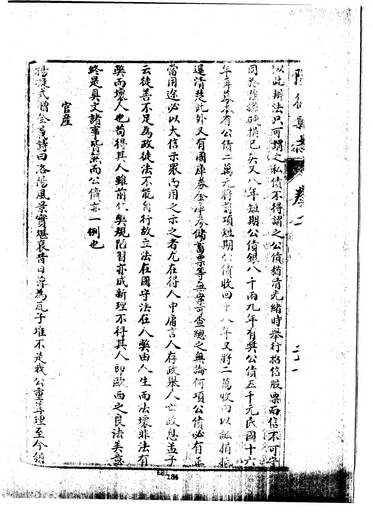 以此辦法只可謂之私債不得謂之公債猶清光緒時舉行招信股票而信不可守
同於勒捐硬捐已矣又八年短期公債銀八十兩九年有獎公債五千元民國十六
年奉有公債二萬元將前項短期公債收回十八年又將二萬收回以
還清楚此外又有國庫券金庫券儲蓄票等無案可查總之無論何項公債必有正
當用途必以大信示眾而用之示之者尤在得人中庸言人存政舉人亡政息孟子
云徒善不足為政徒法不能自行故立法在國守法在人弊由人生而法壞非法有
弊而壞人也苟得其人雖前代與規陋習亦成新理不得其人即歐西之良法美意
終是具文諸事皆然而公債亦一例也
官產
楊凝式贈全義詩曰洛陽風景實堪哀昔日曾為瓦子堆不是我公重葺理至今猶